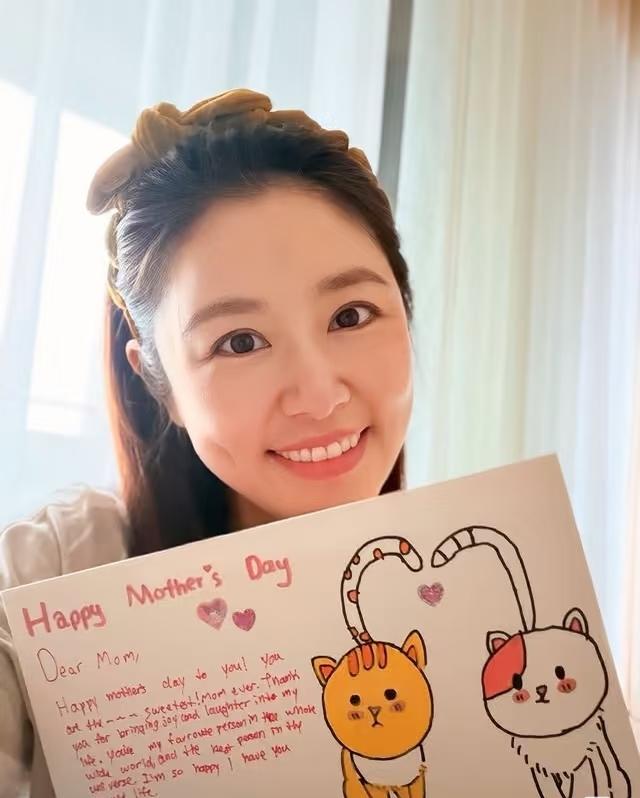 Happy Mother's Day
Dear Mom,
Happy mother's day to you! You
are the ~~~ sweetest! Mom ever. Thank
you for bringing joy and laughter into my
life. You're my favourite person in the whole
whole world, and the best person in the
universe. I'm so happy I have you
life